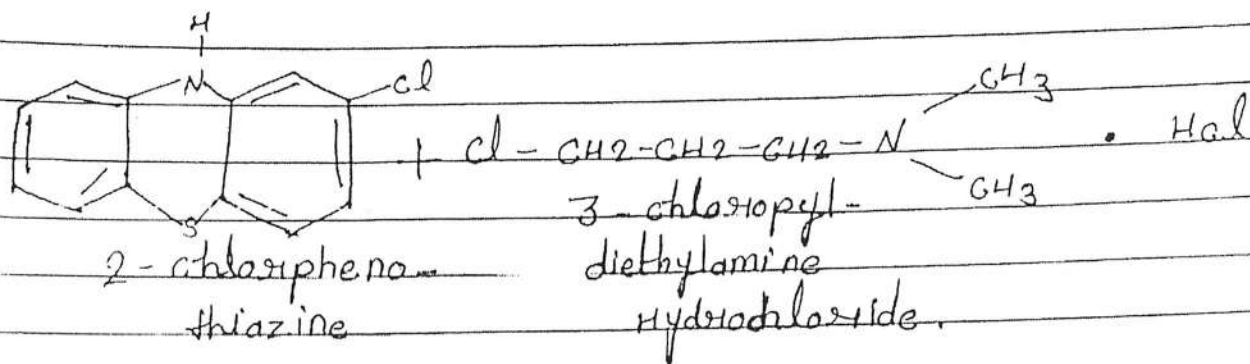 H
N
Cl
S
+ Cl - CH2-CH2-CH2-N
CH3
CH3
. Hcl
2-chlorpheno
thiazine
3-chloropyl-
diethylamine
Hydrochloride.